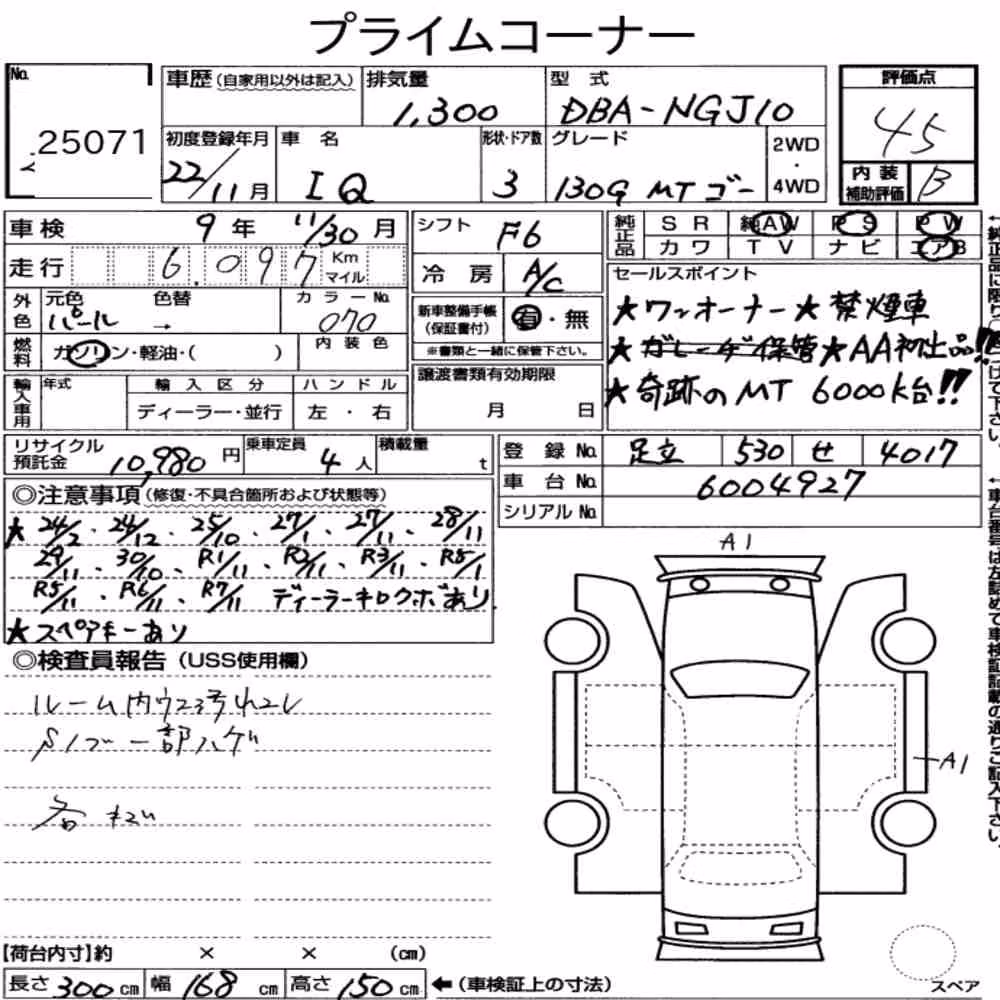 プライムコーナー
No. 25071
車歴(自家用以外は記入) 排気量 1,300 型式 DBA-NGJ10
初度登録年月 22/11月 車名 IQ 形状・ドア数 3 グレード 130G MT ゴー 2WD・4WD
評価点 45
内装補助評価 B
車検 9年 11/30月
走行 6.097 Km マイル
外色 元色 パール 色替 → カラーNo. 070
燃料 ガソリン・軽油・( ) 内装色
輸入車用 年式 輸入区分 ディーラー・並行 ハンドル 左・右
シフト F6
冷房 A/C
新車整備手帳(保証書付) 有・無
※書類と一緒に保管下さい。
譲渡書類有効期限 月 日
純正品 SR 純AW PS PW
カワ TV ナビ エアB
セールスポイント
★ワンオーナー★禁煙車
★ガレージ保管★AA初出品!!
★奇跡のMT 6000K台!!
リサイクル預託金 10,980円 乗車定員 4人 積載量 t
登録No. 足立 530 せ 4017
車台No. 6004927
シリアルNo.
◎注意事項(修復・不具合箇所および状態等)
★24/2・24/12・25/10・27/1・27/11・28/11
29/11・30/10・R1/11・R2/11・R3/11・R5/1
R5/11・R6/11・R7/11 ディーラーキロクボあり
★スペアキーあり
◎検査員報告(USS使用欄)
ルーム内
一部ハゲ
A1
A1
【荷台内寸】約 × × (cm)
長さ 300cm 幅 168cm 高さ 150cm ←(車検証上の寸法)
スペア
←純正品に限り
つけて下さい。
←車台番号は左詰めで車検証記載の通りご記入下さい。